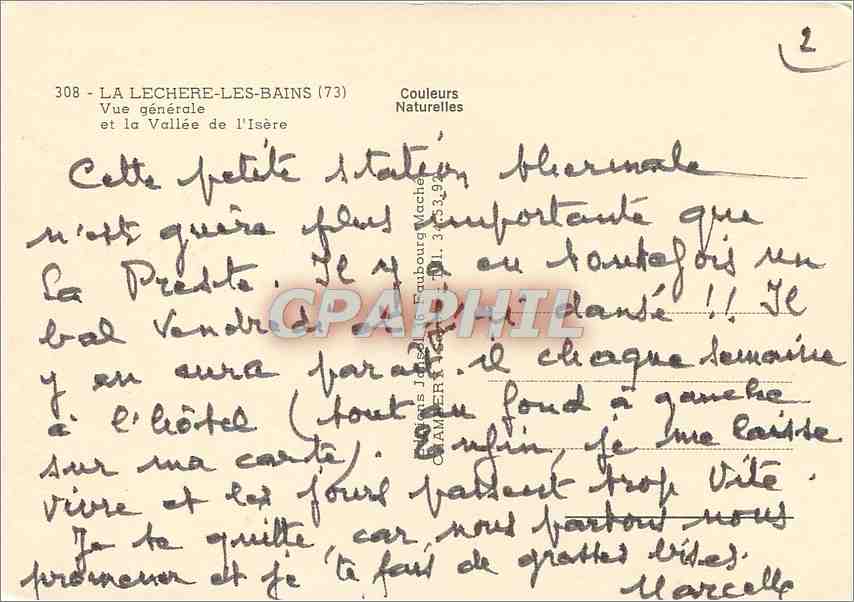 2
308 - LA LECHERE-LES-BAINS (73)
Vue générale
et la Vallée de l'Isère
Couleurs
Naturelles
Cette petite station thermale
n'est guère plus importante que
La Preste. Il y a eu toutefois un
bal Vendredi et j'ai dansé !! Il
y en aura parait-il chaque semaine
à l'hôtel (tout au fond à gauche
sur ma carte). Enfin, je me laisse
vivre et les jours passent trop vite.
Je te quitte, car nous partons nous
promener et je te fais de grosses bises.
Marcelle
Faubourg Maché
CHAMBÉRY Tél. 34.53.92
CPAPHIL